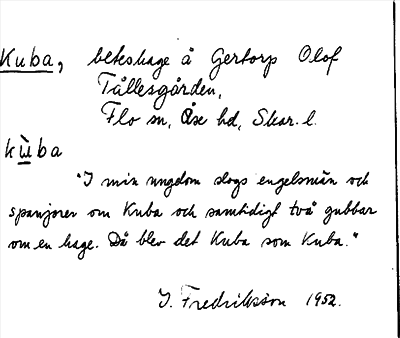 Kuba, beteshage å Gertorp Olof
Tållesgården,
Flo sn, Åse hd, Skar. l.
kùba
"I min ungdom slogs engelsmän och
spanjorer om Kuba och samtidigt två gubbar
om en hage. Då blev det Kuba som Kuba."
J. Fredriksson 1952.